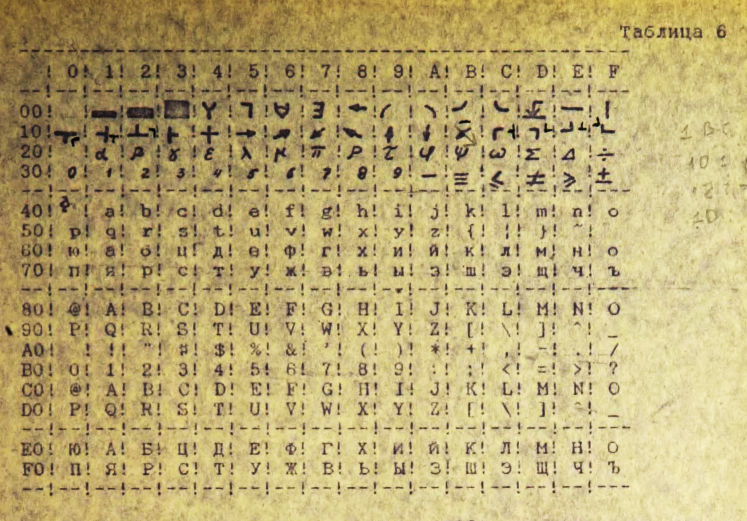 Таблица 6
! 0! 1! 2! 3! 4! 5! 6! 7! 8! 9! A! B! C! D! E! F
00! Y ┐ ∀ ∃ ← (
10! ┼ + → ↓
20! α β γ ε λ κ π ρ τ φ ψ ω Σ Δ ÷
30! 0 1 2 3 4 5 6 7 8 9 — ≡ ≤ ≠ ≥ ±
40! ! a! b! c! d! e! f! g! h! i! j! k! l! m! n! o
50! p! q! r! s! t! u! v! w! x! y! z! {! ¦! }! ~!
60! ю! а! б! ц! д! е! ф! г! х! и! й! к! л! м! н! о
70! п! я! р! с! т! у! ж! в! ь! ы! з! ш! э! щ! ч! ъ
80! @! A! B! C! D! E! F! G! H! I! J! K! L! M! N! O
90! P! Q! R! S! T! U! V! W! X! Y! Z! [! \! ]! ^! _
A0! ! !! "! #! $! %! &! '! (! )! *! +! ,! -! .! /
B0! 0! 1! 2! 3! 4! 5! 6! 7! 8! 9! :! ;! <! =! >! ?
C0! @! A! B! C! D! E! F! G! H! I! J! K! L! M! N! O
D0! P! Q! R! S! T! U! V! W! X! Y! Z! [! \! ]! ^! _
E0! Ю! А! Б! Ц! Д! Е! Ф! Г! Х! И! Й! К! Л! М! Н! О
F0! П! Я! Р! С! Т! У! Ж! В! Ь! Ы! З! Ш! Э! Щ! Ч! Ъ